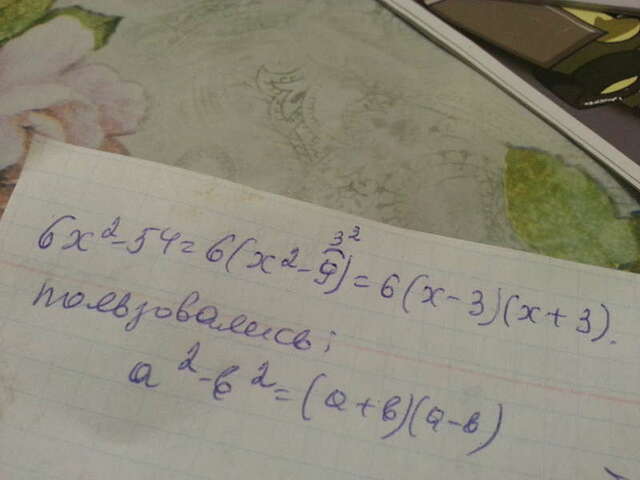 6x²-54=6(x²-9)=6(x-3)(x+3).
3²
пользовались:
a²-b²=(a+b)(a-b)